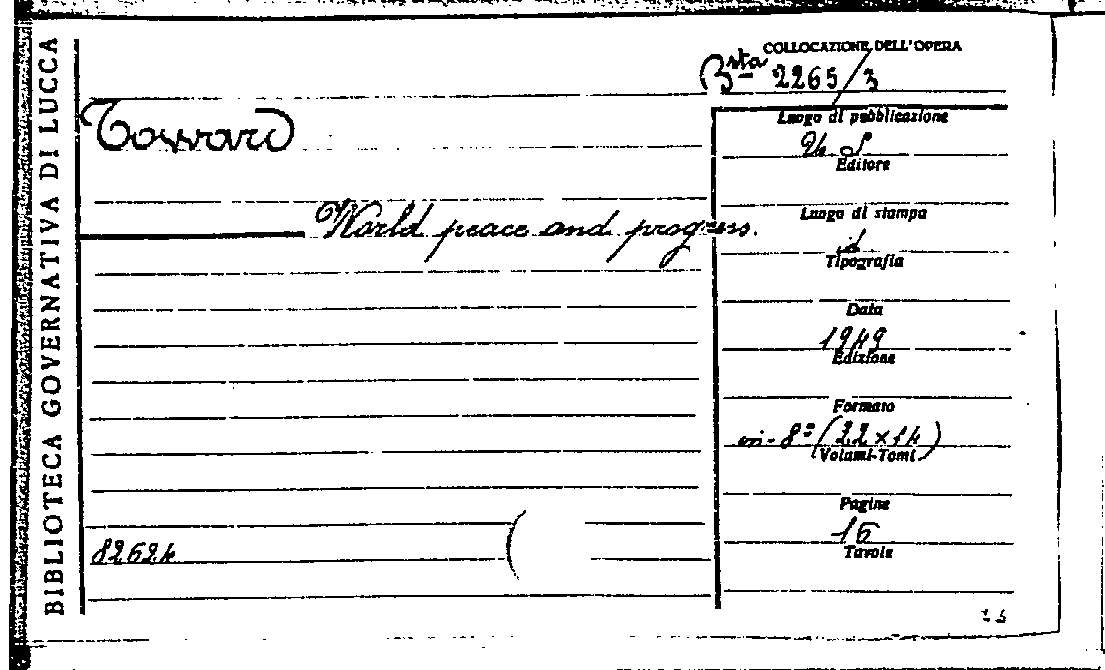 BIBLIOTECA GOVERNATIVA DI LUCCA
COLLOCAZIONE DELL'OPERA
Bsta 2265/3
Toward
World peace and progress.
Luogo di pubblicazione
U. S.
Editore
Luogo di stampa
id
Tipografia
Data
1949
Edizione
Formato
in-8º (22x14)
(Volumi-Tomi)
Pagine
16
Tavole
82624